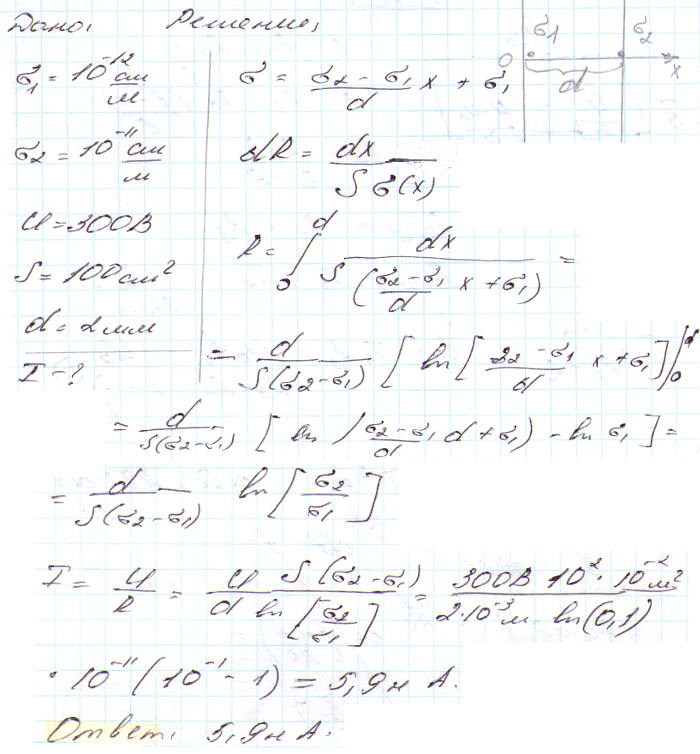 Дано: Решение:
σ₁ = 10⁻¹² см/м
σ₂ = 10⁻¹¹ см/м
U = 300В
S = 100 см²
d = 2мм
I - ?
σ₁ σ₂
0 d x
σ = (σ₂ - σ₁)/d x + σ₁
dR = dx/(S σ(x))
R = ∫₀ᵈ dx/(S((σ₂ - σ₁)/d x + σ₁)) =
= d/(S(σ₂ - σ₁)) [ ln [ (σ₂ - σ₁)/d x + σ₁ ] |₀ᵈ
= d/(S(σ₂ - σ₁)) [ ln ((σ₂ - σ₁)/d d + σ₁) - ln σ₁ ] =
= d/(S(σ₂ - σ₁)) ln [ σ₂/σ₁ ]
I = U/R = (U S (σ₂ - σ₁))/(d ln [σ₂/σ₁]) = (300В 10² · 10⁻² м²)/(2·10⁻³ м ln(0,1))
· 10⁻¹¹ (10⁻¹ - 1) = 5,9 н А.
Ответ: 5,9 н А.